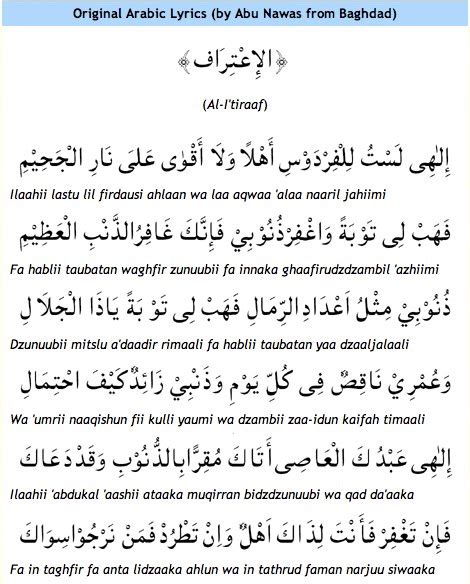 Original Arabic Lyrics (by Abu Nawas from Baghdad)
﴿الإِعْتِرَاف﴾
(Al-I'tiraaf)
إِلٰهِى لَسْتُ لِلْفِرْدَوْسِ أَهْلًا وَلَا أَقْوٰى عَلَى نَارِ الْجَحِيْمِ
Ilaahii lastu lil firdausi ahlaan wa laa aqwaa 'alaa naaril jahiimi
فَهَبْ لِى تَوْبَةً وَاغْفِرْ ذُنُوْبِيْ فَإِنَّكَ غَافِرُ الذَّنْبِ الْعَظِيْمِ
Fa hablii taubatan waghfir zunuubii fa innaka ghaafirudzdzambil 'azhiimi
ذُنُوْبِيْ مِثْلُ اَعْدَادِ الرِّمَالِ فَهَبْ لِى تَوْبَةً يَاذَا الْجَلَالِ
Dzunuubii mitslu a'daadir rimaali fa hablii taubatan yaa dzaaljalaali
وَعُمْرِيْ نَاقِصٌ فِى كُلِّ يَوْمٍ وَذَنْبِيْ زَائِدٌ كَيْفَ احْتِمَالِ
Wa 'umrii naaqishun fii kulli yaumi wa dzambii zaa-idun kaifah timaali
إِلٰهِى عَبْدُكَ الْعَاصِى أَتَاكَ مُقِرًّا بِالذُّنُوْبِ وَقَدْ دَعَاكَ
Ilaahii 'abdukal 'aashii ataaka muqirran bidzdzunuubi wa qad da'aaka
فَإِنْ تَغْفِرْ فَأَنْتَ لِذَاكَ اَهْلٌ وَاِنْ تَطْرُدْ فَمَنْ نَرْجُوْاسِوَاكَ
Fa in taghfir fa anta lidzaaka ahlun wa in tathrud faman narjuu siwaaka